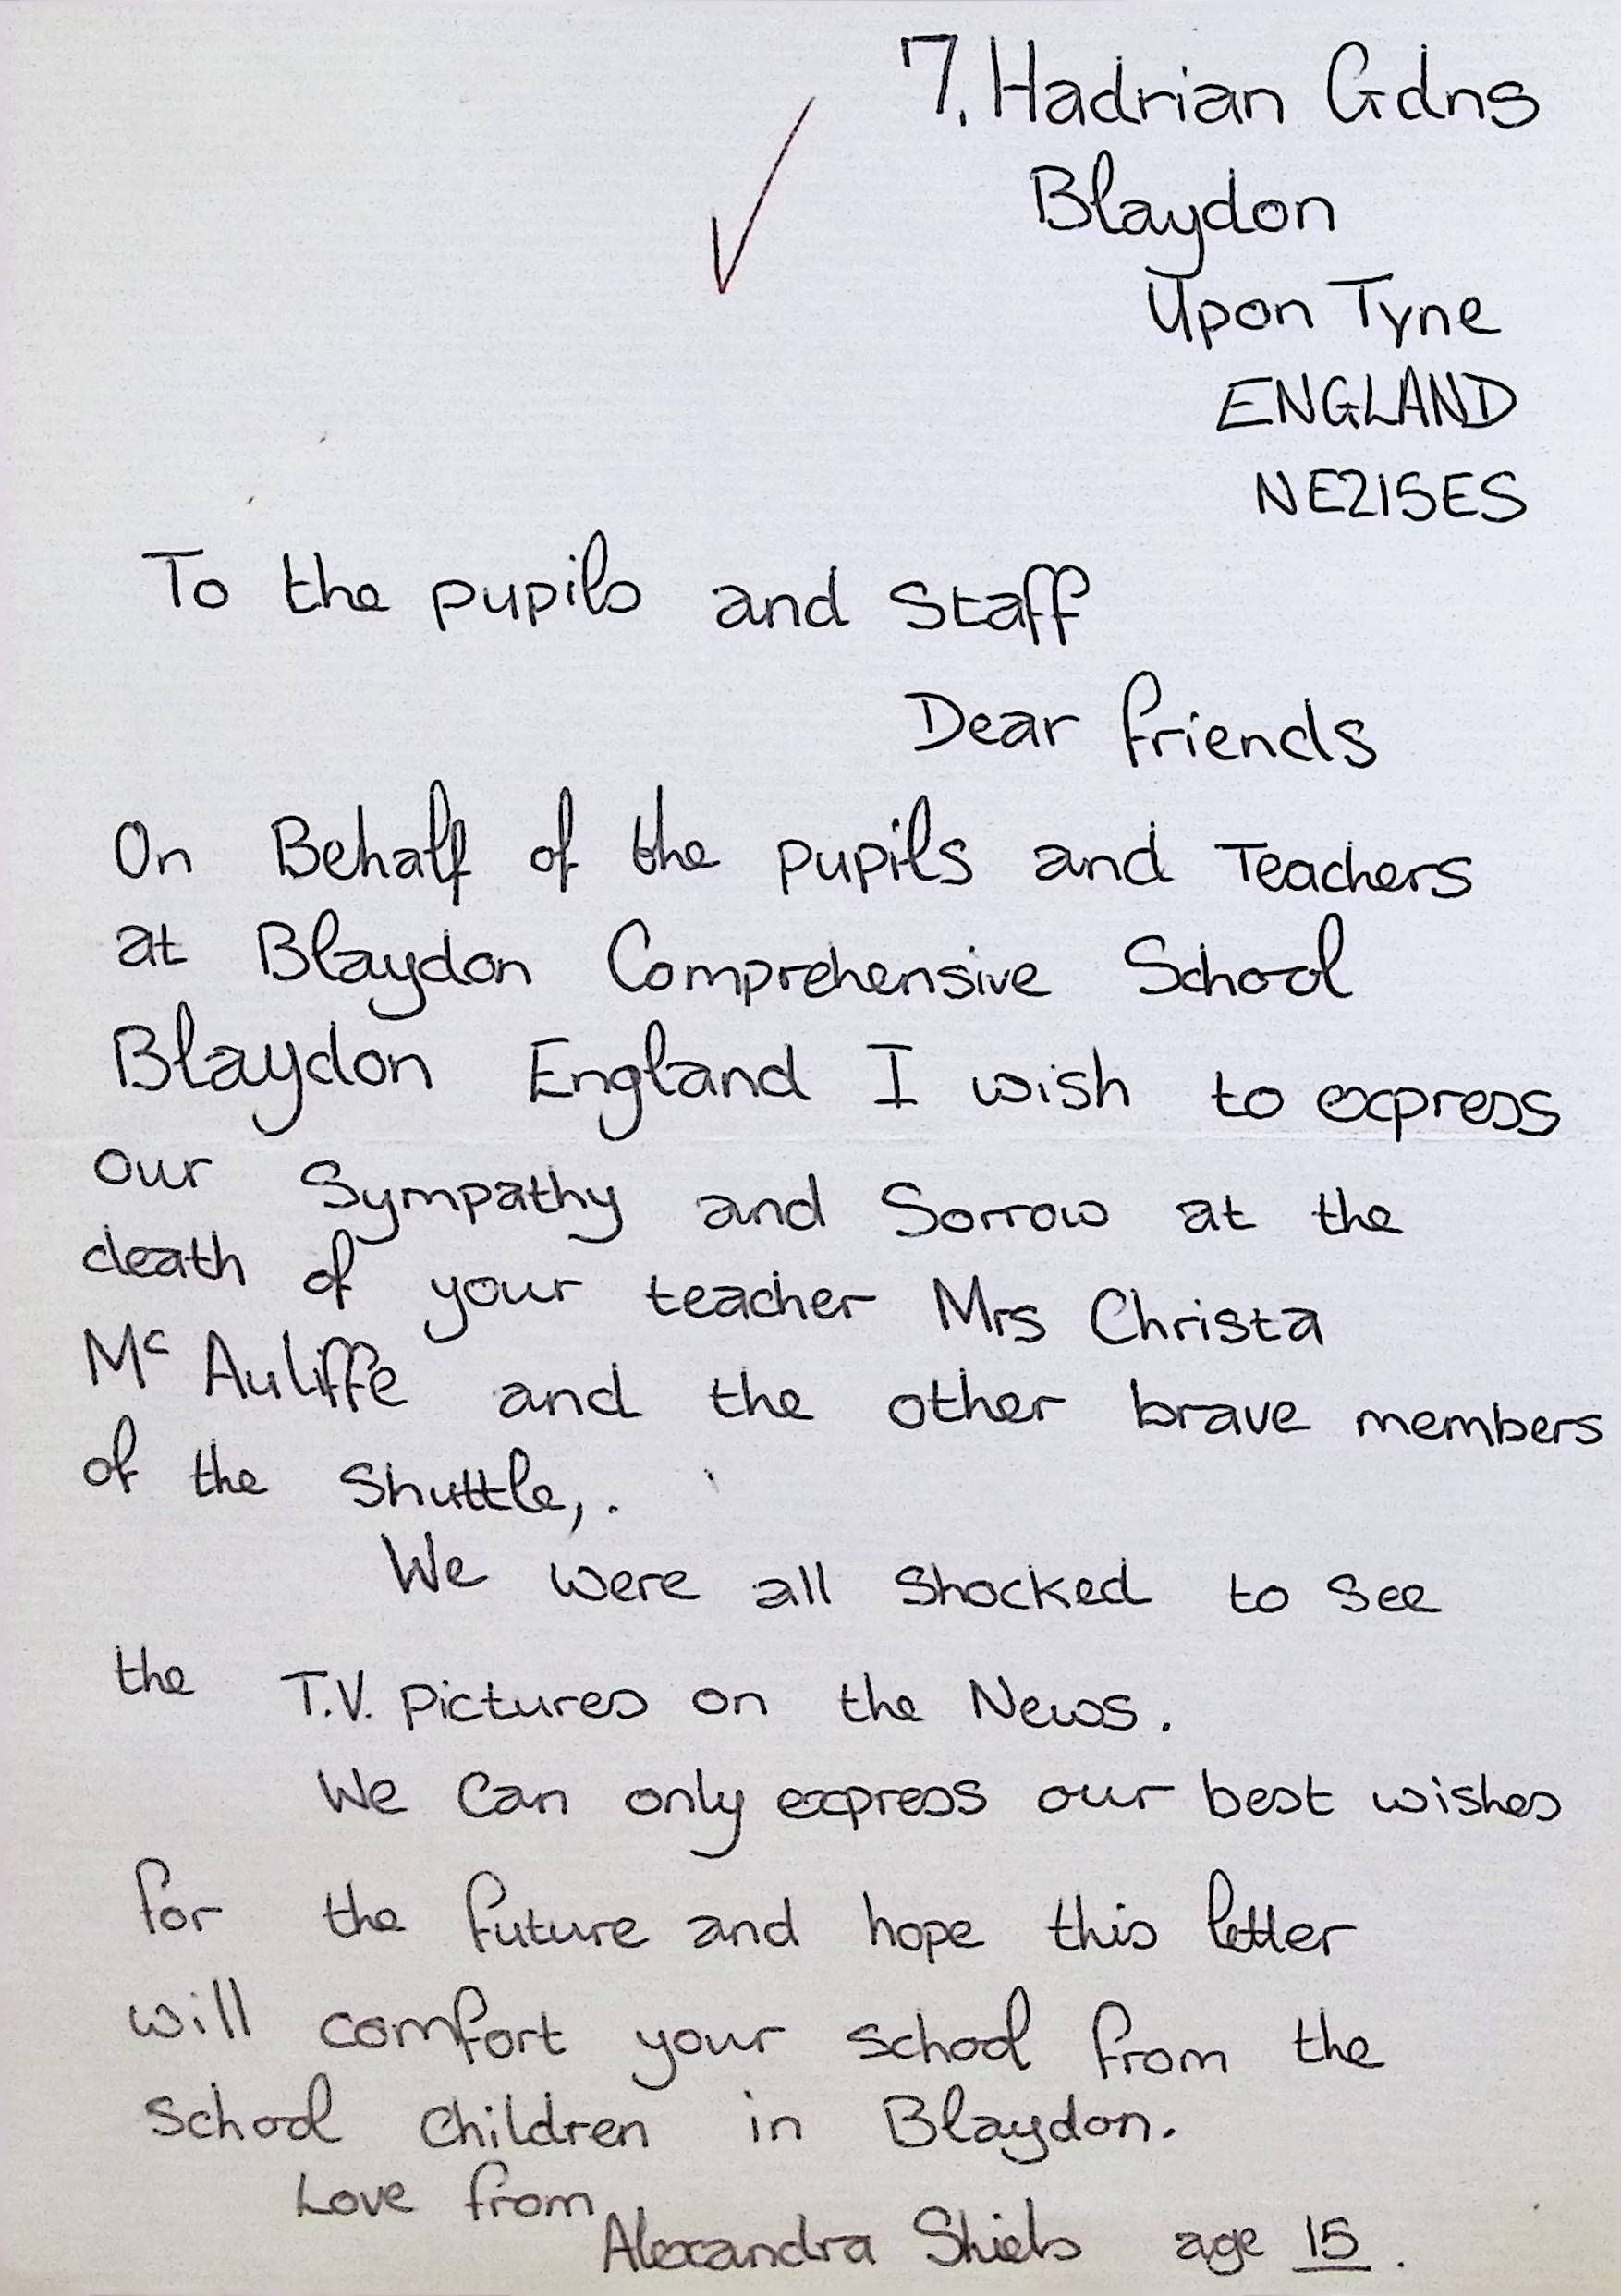 7, Hadrian Gdns
Blaydon
Upon Tyne
ENGLAND
NE215ES
To the pupils and Staff
Dear friends
On Behalf of the pupils and Teachers
at Blaydon Comprehensive School
Blaydon England I wish to express
our Sympathy and Sorrow at the
death of your teacher Mrs Christa
Mc Auliffe and the other brave members
of the Shuttle,.
We were all shocked to see
the T.V. pictures on the News.
We Can only express our best wishes
for the future and hope this letter
will comfort your school from the
school Children in Blaydon.
Love from
Alexandra Shiels age 15.